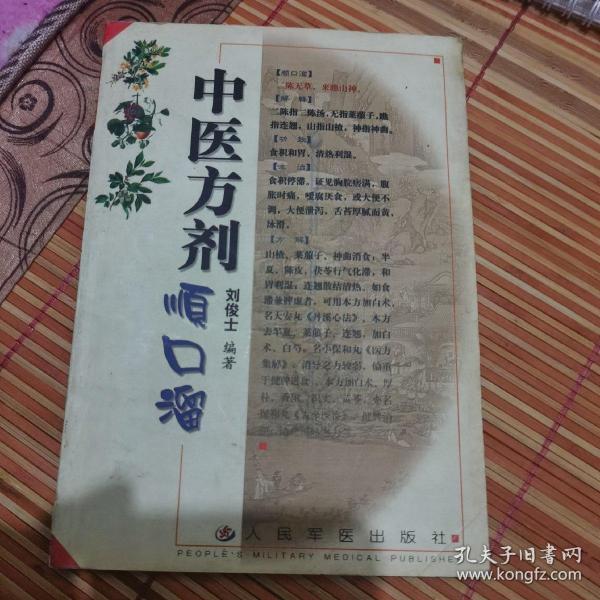 中医方剂
順口溜
刘俊士 编著
【順口溜】
二陈无草，来翘山神。
【解释】
二陈指二陈汤，无指莱菔子，翘
指连翘，山指山楂，神指神曲。
【功效】
食积和胃，清热利湿。
【主治】
食积停滞。证见胸脘痞满，腹
胀时痛，嗳腐厌食，或大便不
调，大便泄泻，舌苔厚腻而黄，
脉滑。
【方解】
山楂、莱菔子、神曲消食；半
夏、陈皮、茯苓行气化滞，和
胃利湿；连翘散结清热。如食
滞兼脾虚者，可用本方加白术，
名大安丸《丹溪心法》。本方
去半夏、莱菔子、连翘，加白
术、白芍。名小保和丸《医方
集解》。消导之力较弱，偏重
于健脾进食。本方加白术、厚
人民军医出版社
PEOPLE'S MILITARY MEDICAL PUBLISHER
孔夫子旧书网
www.kongfz.com